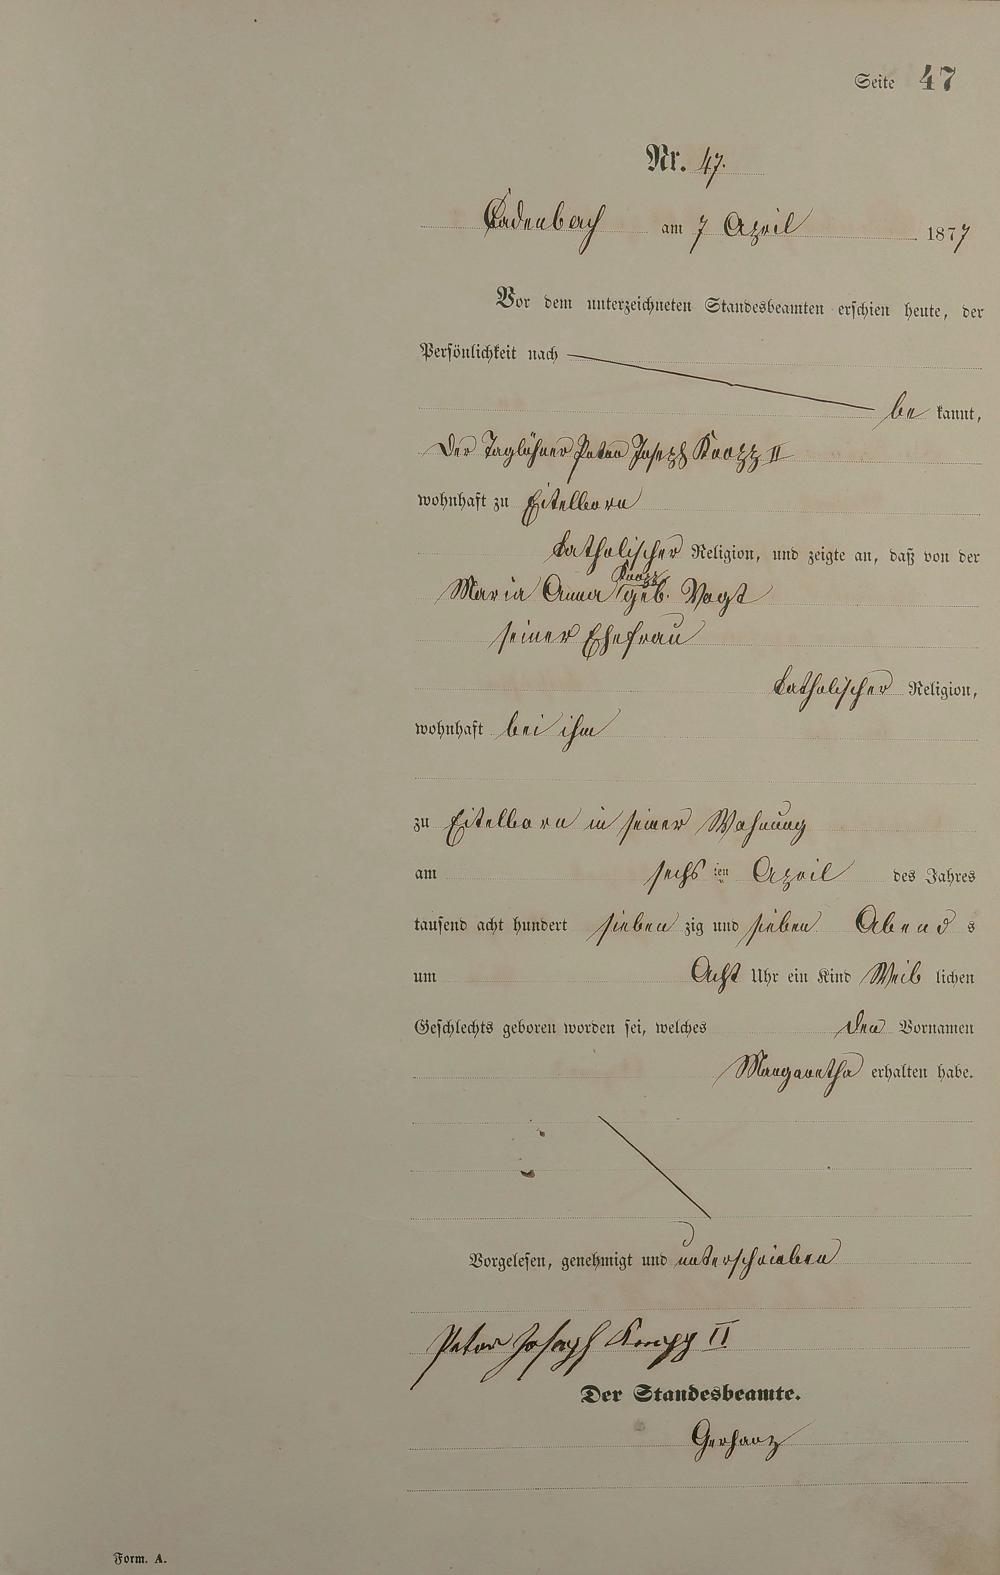 Seite 47
Nr. 47.
Cadenbach am 7 April 1877
Vor dem unterzeichneten Standesbeamten erschien heute, der
Persönlichkeit nach
be kannt,
der Taglöhner Peter Joseph Knopp II
wohnhaft zu Eitelborn
katholischer Religion, und zeigte an, daß von der
Knopp
Maria Anna geb. Vogt
seiner Ehefrau
katholischer Religion,
wohnhaft bei ihm
zu Eitelborn in seiner Wohnung
am sechs ten April des Jahres
tausend acht hundert sieben zig und sieben Abend s
um Acht Uhr ein Kind Weib lichen
Geschlechts geboren worden sei, welches den Vornamen
Margaretha erhalten habe.
Vorgelesen, genehmigt und unterschrieben
Peter Joseph Knopp II
Der Standesbeamte.
Gerharz
Form. A.